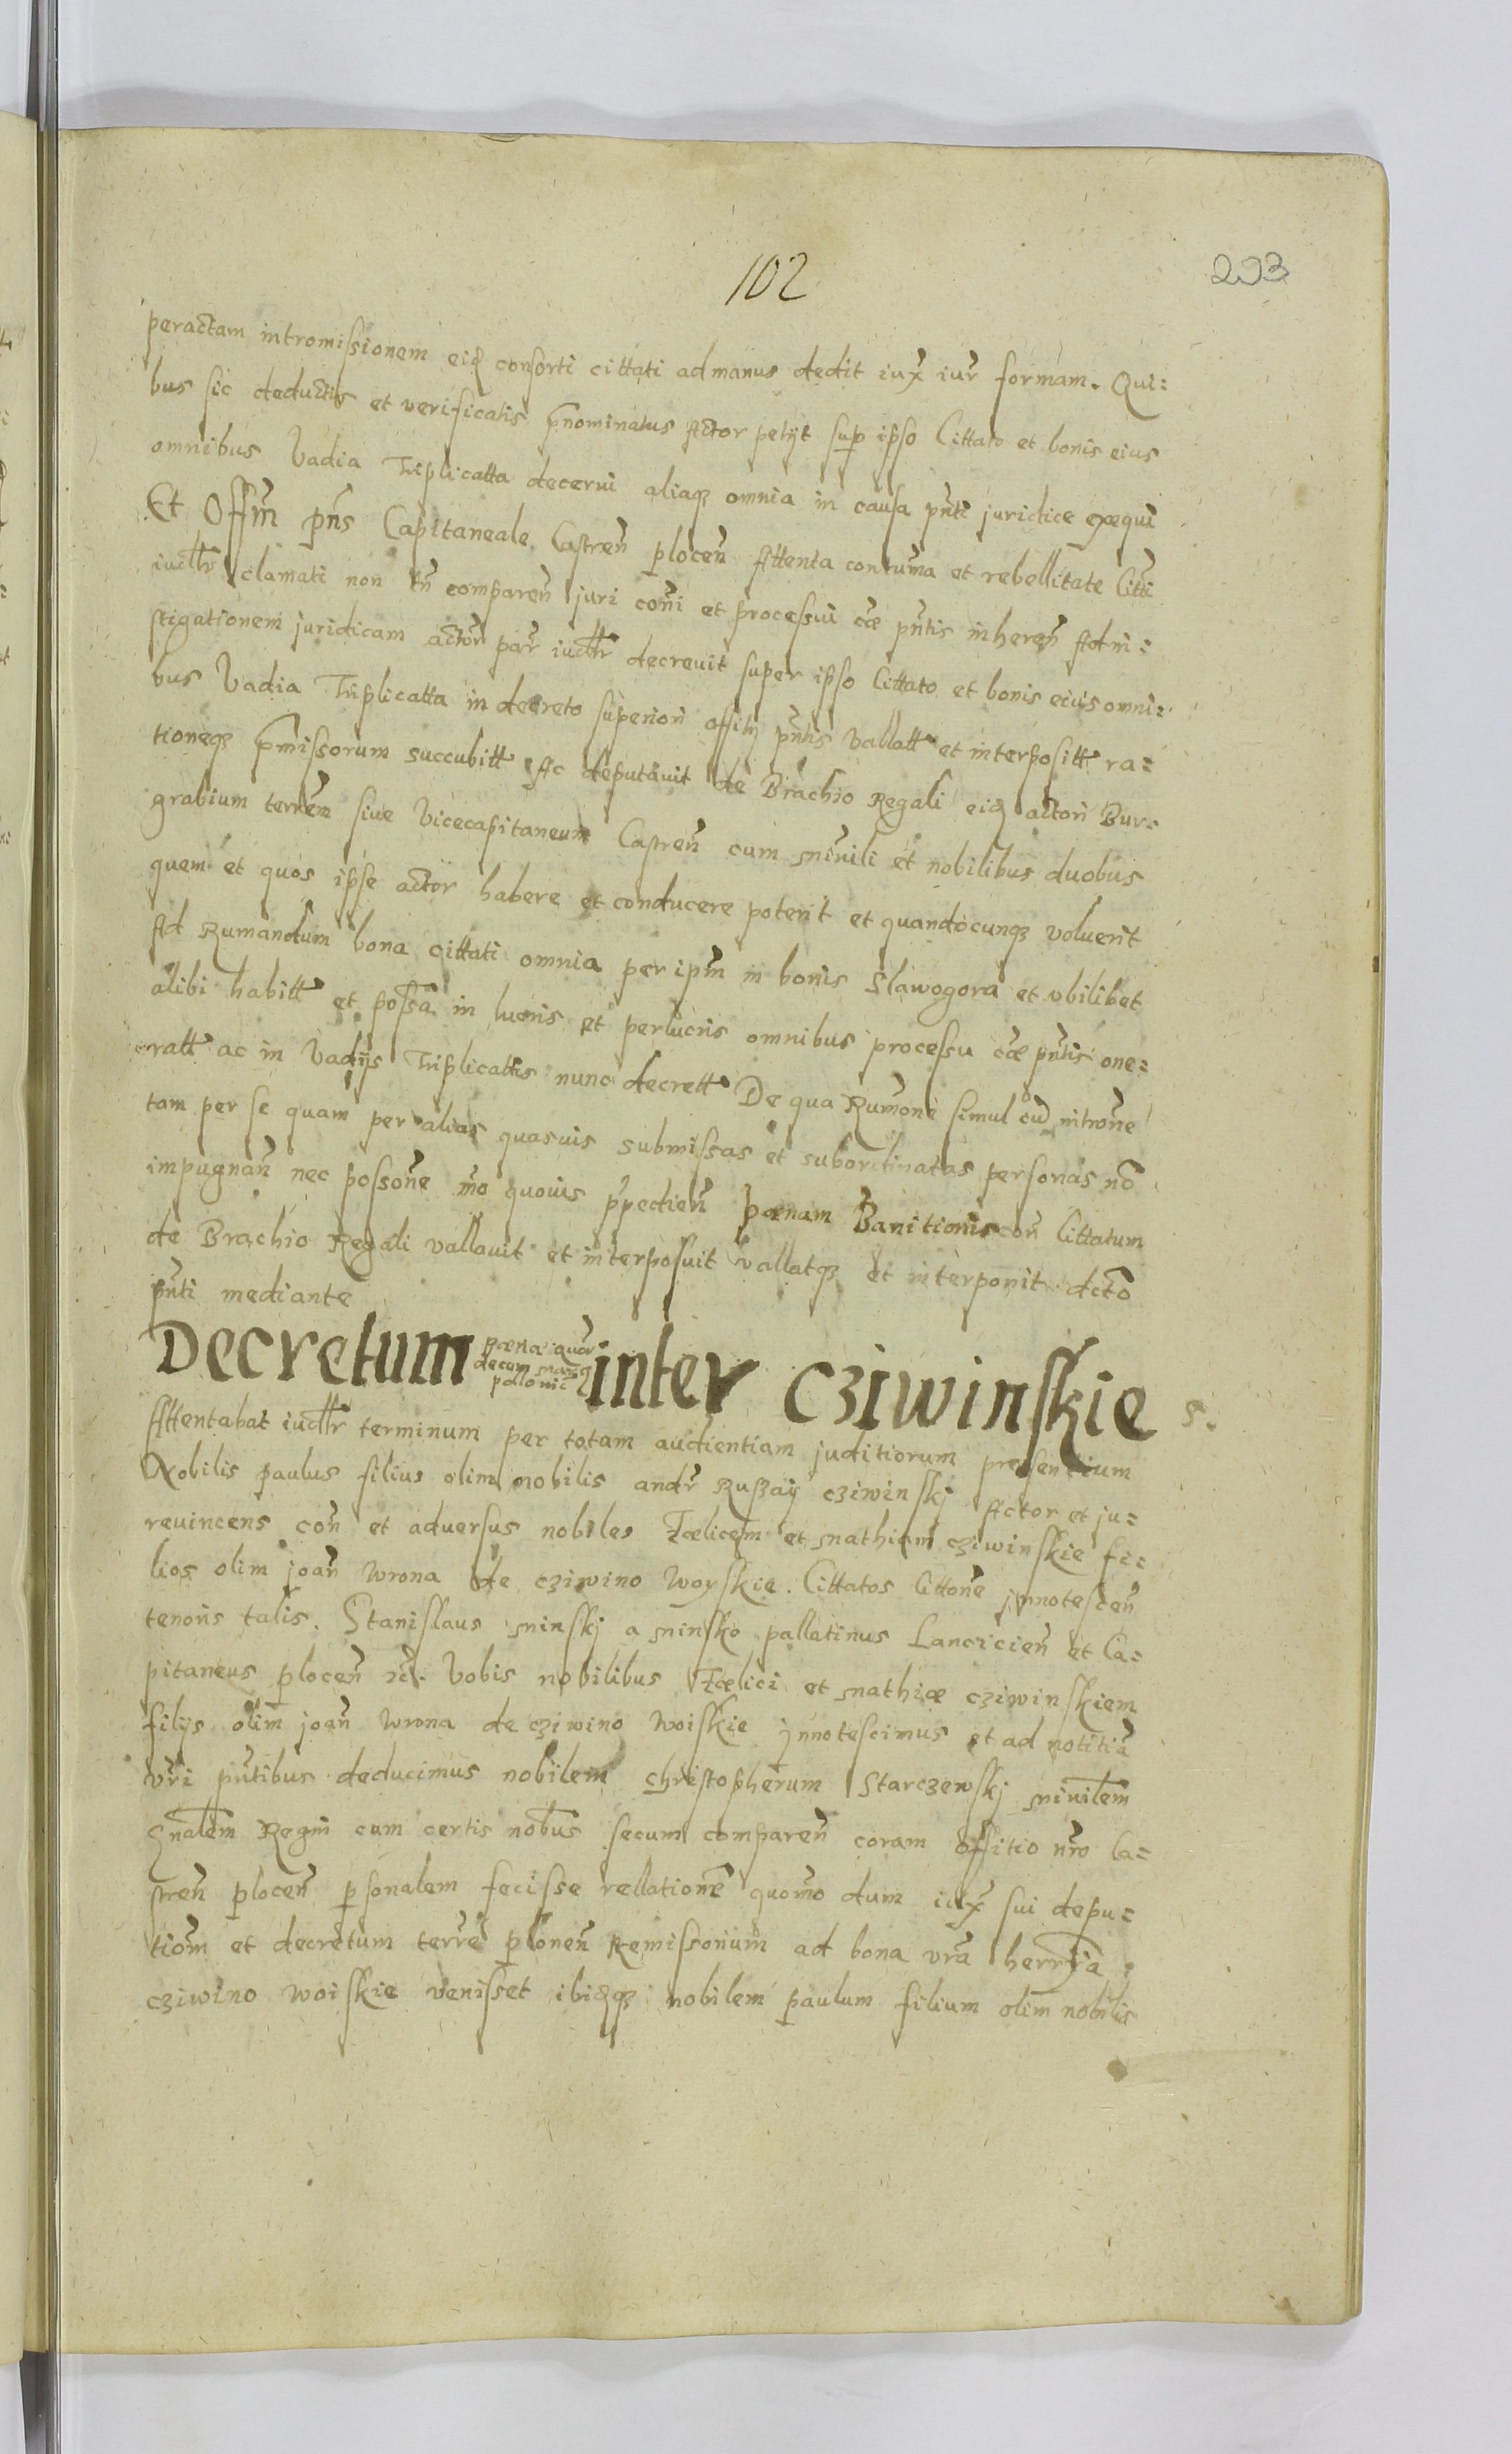 102
293
peractam intromissionem eiꝗ consorti cittati ad manus dedit iuꝝ iur̃ formam. Qui=
bus sic deductis et verificatis p̃nominatus Actor petijt sup ipso Cittato et bonis eius
omnibus Vadia Triplicatta decerni aliaqꝫ omnia in causa pñti juridice exequi
Et Offm̃ pñs Capitaneale Castreñ plocen̄ Attenta contum̃a et rebellitate Citti
iudlr̃ clamati non tñ compareñ juri com̃i et processui cæ pñtis inhereñ Ad in:
stigationem juridicam actor̃ par̃ iudlr̃ decreuit super ipso Cittato et bonis eius omni:
bus Vadia Triplicatta in decreto superiori offitij pñtis vallatt et interpositt ra=
tioneqꝫ p̃missorum succubitt Ac deputauit de Brachio Regali eiꝗ actori Bur=
grabium terrem̃ siue Vicecapitaneum Castreñ cum mĩnili et nobilibus duobus
quem et quos ipse actor habere et conducere poterit et quandocunqꝫ voluerit
Ad Rumandum bona cittati omnia per ipm̃ in bonis Slawogora et vbilibet
alibi habitt et possa in lucris et perlucris omnibus processu cæ pñtis one=
ratt ac in Vadijs Triplicattis nunc decrett De qua Rumõne simul cũ intrõne
tam per se quam per alias quasuis submissas et subordinatas personas nõ
impugnañ nec possõne mõ quouis p̃pedieñ pænam Banitionis coñ Cittatum
de Brachio Regali vallauit et interposuit vallatqꝫ et interponit dcto
pñti mediante
Decretum pænæ quar̃ decem marcꝗ pollonic inter Cziwinskie
s.
Attentabat iudlr̃ terminum per totam audientiam juditiorum presentium
Nobilis paulus filius olim nobilis andr̃ Ruszay cziwinskj Actor et ju=
reuincens coñ et aduersus nobiles Fælicem et mathiam cziwinskie fi=
lios olim joañ Wrona de cziwino Woyskie. Cittatos Cittõne jnnotesceñ
tenoris talis. Stanislaus minskj a minsko pallatinus Lancicieñ et Ca=
pitaneus ploceñ ꝛc̃. Vobis nobilibus Fælici et mathiæ cziwinskiem
filijs olim̃ joañ Wrona de cziwino Woiskie jnnotescimus et ad notitiã
vr̃i pñtibus deducimus nobilem christopherum Starczewskj mĩnilem̃
Gnalem̃ Regni cum certis nobus secum compareñ coram offitio nr̃o Ca=
streñ ploceñ psonalem fecisse rellationẽ quom̃o dum iuꝝ sui depu=
tiõm et decretum terrẽ ploneñ Remissorium ad bona vr̃a herr̃ia
cziwino Woiskie venisset ibiꝗqꝫ nobilem paulum filium olim nobilis